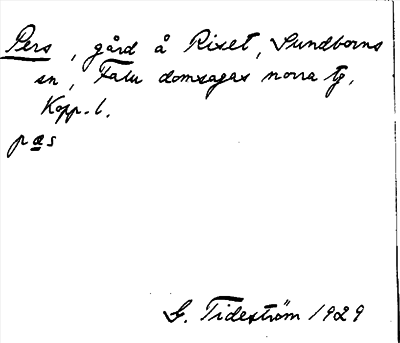 Pers, gård å Riset, Sundborns
sn, Falu domsagas norra tg,
Kopp. l.
pæs
G. Tideström 1929